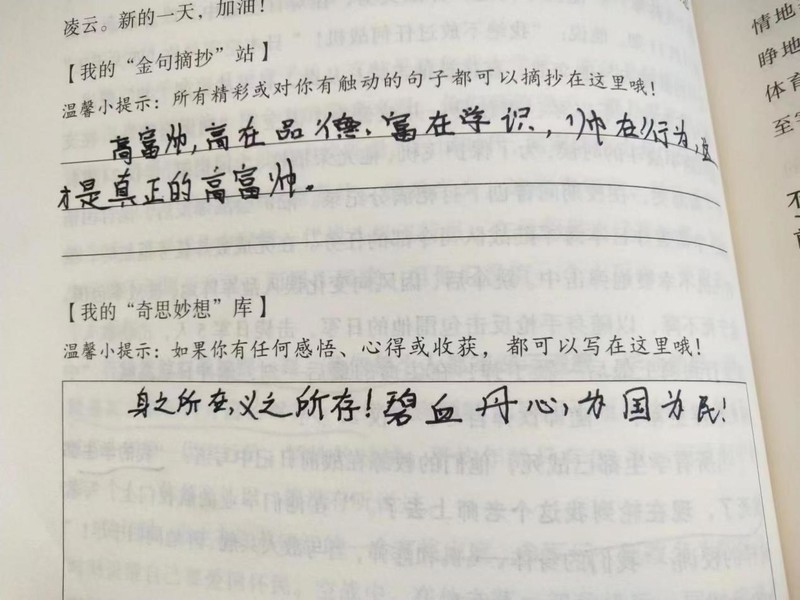 凌云。新的一天，加油！
【我的“金句摘抄”站】
温馨小提示：所有精彩或对你有触动的句子都可以摘抄在这里哦！
高富帅，高在品德、富在学识，帅在行为，这
才是真正的高富帅。
【我的“奇思妙想”库】
温馨小提示：如果你有任何感悟、心得或收获，都可以写在这里哦！
身之所在，义之所存！碧血丹心，为国为民！
情地
睁地
体育
至
不